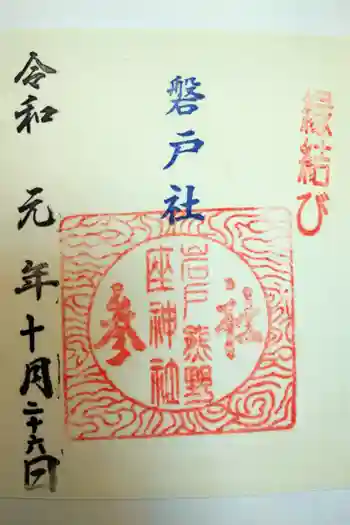 縁結び
磐戸社
奉 社
岩戸熊野
座神社
令和元年十月二十六日